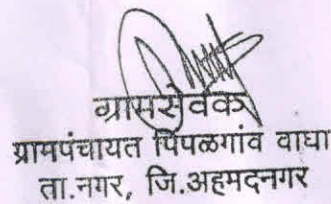 ग्रामसेवक
ग्रामपंचायत पिंपळगांव वाघा
ता.नगर, जि.अहमदनगर